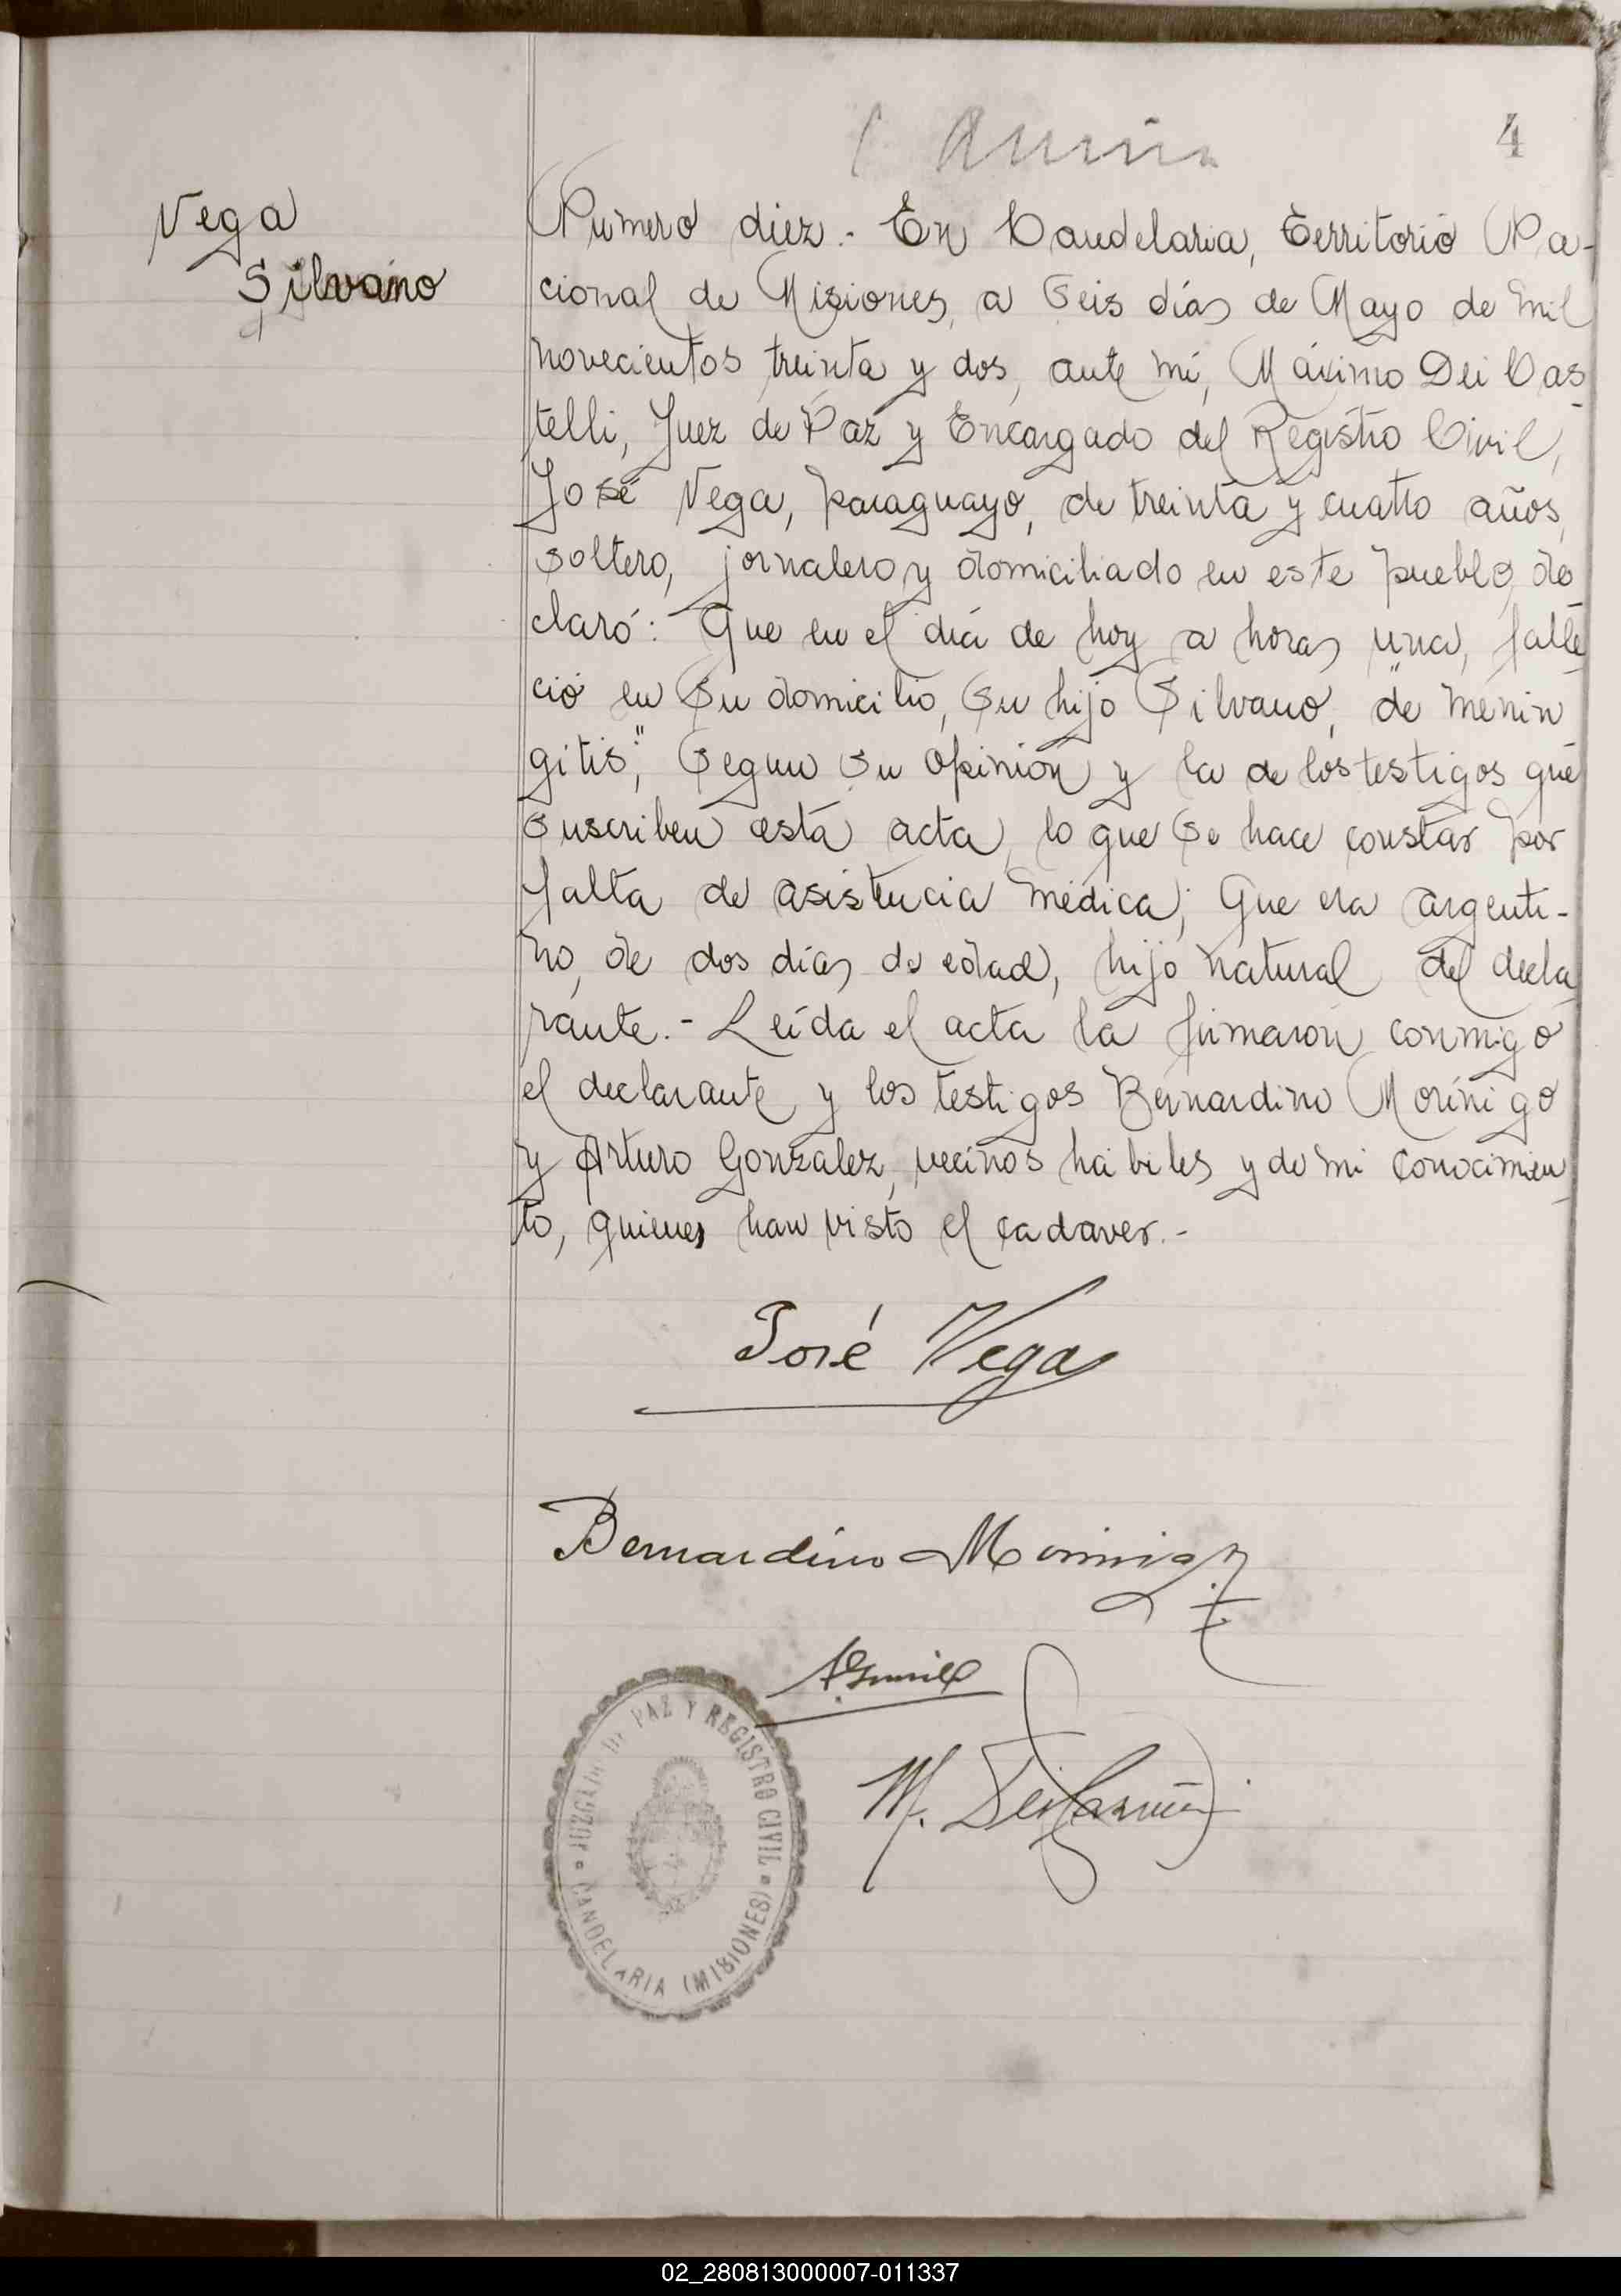 4
Vega
Silvano
Número diez.- En Candelaria, Territorio Na-
cional de Misiones, a seis días de Mayo de mil
novecientos treinta y dos, ante mí, Máximo Dei Cas-
telli, Juez de Paz y Encargado del Registro Civil,
José Vega, paraguayo, de treinta y cuatro años,
soltero, jornalero y domiciliado en este pueblo, de-
claró: Que en el día de hoy a horas una, falle-
ció en su domicilio, su hijo Silvano, de "menin-
gitis", segun su opinión y la de los testigos que
suscriben esta acta, lo que se hace constar por
falta de asistencia médica; Que era argenti-
no, de dos días de edad, hijo natural del decla-
rante.- Leída el acta la firmaron conmigo
el declarante y los testigos Bernardino Morínigo
y Arturo Gonzalez, vecinos hábiles y de mi conocimien-
to, quienes han visto el cadaver.-
José Vega
Bernardino Morinigo
M. Dei Castelli
JUZGADO DE PAZ Y REGISTRO CIVIL
CANDELARIA (MISIONES)
02_280813000007-011337